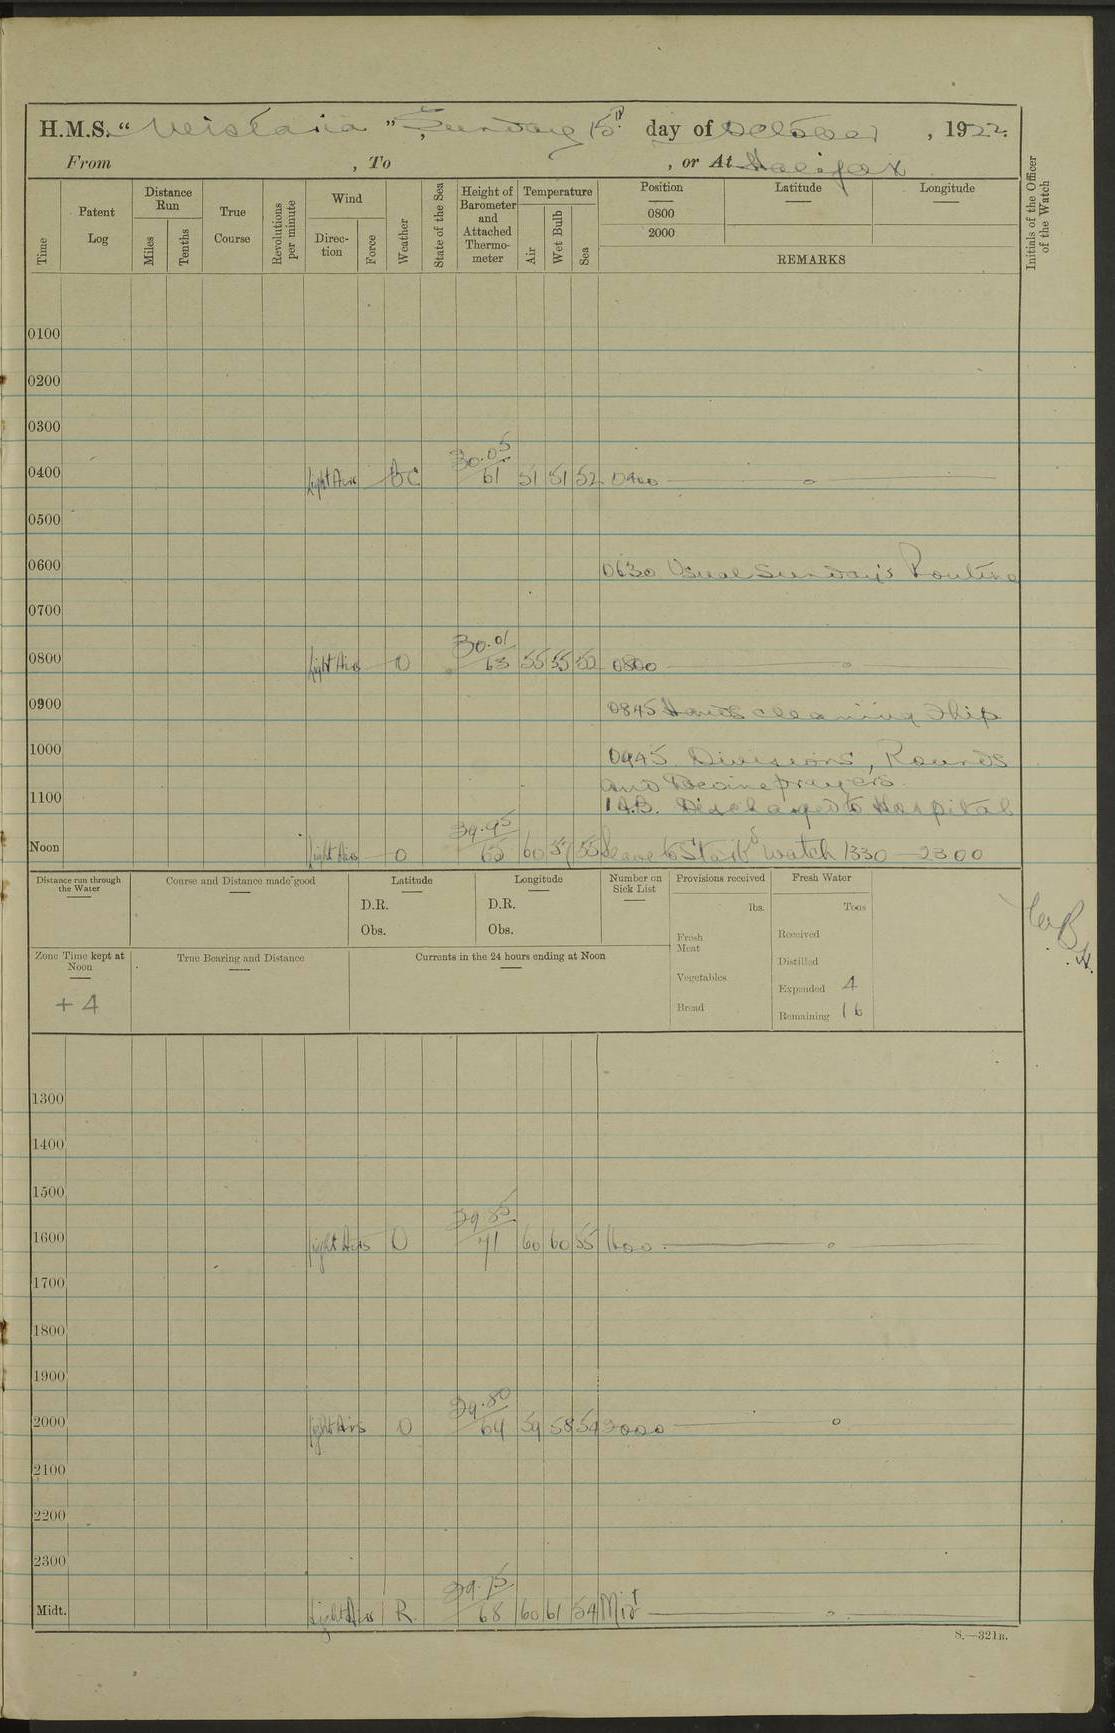 H.M.S. "Wistaria", Sunday 15th day of October, 1922.
From , To , or At Halifax
Time
Patent Log
Distance Run
Miles
Tenths
True Course
Revolutions per minute
Wind
Direction
Force
Weather
State of the Sea
Height of Barometer and Attached Thermometer
Temperature
Air
Wet Bulb
Sea
Position
0800
2000
Latitude
Longitude
REMARKS
Initials of the Officer of the Watch
0100
0200
0300
0400 Light Airs BC 30.05 61 51 51 52 0400
0500
0600 0630 Usual Sunday's Routine
0700
0800 Light Airs O 30.01 63 55 55 52 0800
0900 0845 Hands cleaning Ship
1000 0945 Divisions, Rounds
and Devine prayers
1100 1 A.B. Discharged to Hospital
Noon Light Airs O 29.95 65 60 57 55 Leave to Starbd watch 1330 - 2300
Distance run through the Water
Course and Distance made good
Latitude
D.R.
Obs.
Longitude
D.R.
Obs.
Number on Sick List
Provisions received
lbs.
Fresh Meat
Vegetables
Bread
Fresh Water
Tons
Received
Distilled
Expended 4
Remaining 16
Zone Time kept at Noon
+ 4
True Bearing and Distance
Currents in the 24 hours ending at Noon
1300
1400
1500
1600 Light Airs O 29.85 71 60 60 55 1600
1700
1800
1900
2000 Light Airs O 29.80 64 59 58 54 2000
2100
2200
2300
Midt. Light Airs R. 29.75 68 60 61 54 Midt
S.—321B.